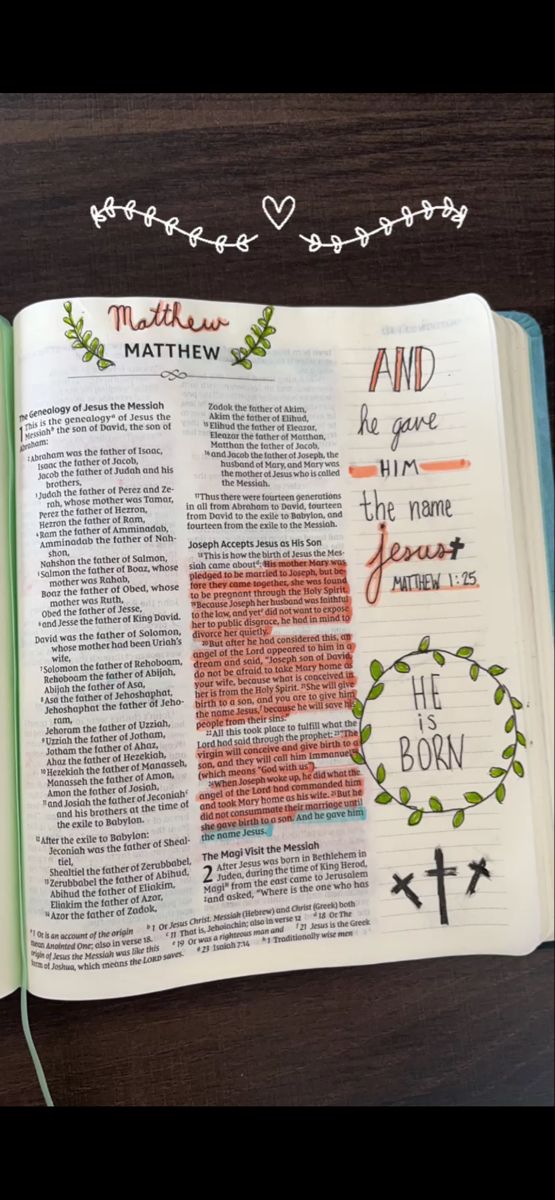 Matthew
MATTHEW
The Genealogy of Jesus the Messiah
1 This is the genealogyᵃ of Jesus the
Messiahᵇ the son of David, the son of
Abraham:
²Abraham was the father of Isaac,
Isaac the father of Jacob,
Jacob the father of Judah and his
brothers,
³Judah the father of Perez and Ze-
rah, whose mother was Tamar,
Perez the father of Hezron,
Hezron the father of Ram,
⁴Ram the father of Amminadab,
Amminadab the father of Nah-
shon,
Nahshon the father of Salmon,
⁵Salmon the father of Boaz, whose
mother was Rahab,
Boaz the father of Obed, whose
mother was Ruth,
Obed the father of Jesse,
⁶and Jesse the father of King David.
David was the father of Solomon,
whose mother had been Uriah's
wife,
⁷Solomon the father of Rehoboam,
Rehoboam the father of Abijah,
Abijah the father of Asa,
⁸Asa the father of Jehoshaphat,
Jehoshaphat the father of Jeho-
ram,
Jehoram the father of Uzziah,
⁹Uzziah the father of Jotham,
Jotham the father of Ahaz,
Ahaz the father of Hezekiah,
¹⁰Hezekiah the father of Manasseh,
Manasseh the father of Amon,
Amon the father of Josiah,
¹¹and Josiah the father of Jeconiahᶜ
and his brothers at the time of
the exile to Babylon.
¹²After the exile to Babylon:
Jeconiah was the father of Sheal-
tiel,
Shealtiel the father of Zerubbabel,
¹³Zerubbabel the father of Abihud,
Abihud the father of Eliakim,
Eliakim the father of Azor,
¹⁴Azor the father of Zadok,
Zadok the father of Akim,
Akim the father of Elihud,
¹⁵Elihud the father of Eleazar,
Eleazar the father of Matthan,
Matthan the father of Jacob,
¹⁶and Jacob the father of Joseph, the
husband of Mary, and Mary was
the mother of Jesus who is called
the Messiah.
¹⁷Thus there were fourteen generations
in all from Abraham to David, fourteen
from David to the exile to Babylon, and
fourteen from the exile to the Messiah.
Joseph Accepts Jesus as His Son
¹⁸This is how the birth of Jesus the Mes-
siah came aboutᵈ: His mother Mary was
pledged to be married to Joseph, but be-
fore they came together, she was found
to be pregnant through the Holy Spirit.
¹⁹Because Joseph her husband was faithful
to the law, and yetᵉ did not want to expose
her to public disgrace, he had in mind to
divorce her quietly.
²⁰But after he had considered this, an
angel of the Lord appeared to him in a
dream and said, "Joseph son of David,
do not be afraid to take Mary home as
your wife, because what is conceived in
her is from the Holy Spirit. ²¹She will give
birth to a son, and you are to give him
the name Jesus,ᶠ because he will save his
people from their sins."
²²All this took place to fulfill what the
Lord had said through the prophet: ²³"The
virgin will conceive and give birth to a
son, and they will call him Immanuel"ᵍ
(which means "God with us").
²⁴When Joseph woke up, he did what the
angel of the Lord had commanded him
and took Mary home as his wife. ²⁵But he
did not consummate their marriage until
she gave birth to a son. And he gave him
the name Jesus.
The Magi Visit the Messiah
2 After Jesus was born in Bethlehem in
Judea, during the time of King Herod,
Magiᵃ from the east came to Jerusalem
²and asked, "Where is the one who has
ᵃ1 Or is an account of the origin ᵇ1 Or Jesus Christ. Messiah (Hebrew) and Christ (Greek) both
mean Anointed One; also in verse 18. ᶜ11 That is, Jehoiachin; also in verse 12 ᵈ18 Or The
origin of Jesus the Messiah was like this ᵉ19 Or was a righteous man and ᶠ21 Jesus is the Greek
form of Joshua, which means the LORD saves. ᵍ23 Isaiah 7:14 ᵃ1 Traditionally wise men
AND
he gave
HIM
the name
jesus
MATTHEW 1:25
HE
is
BORN